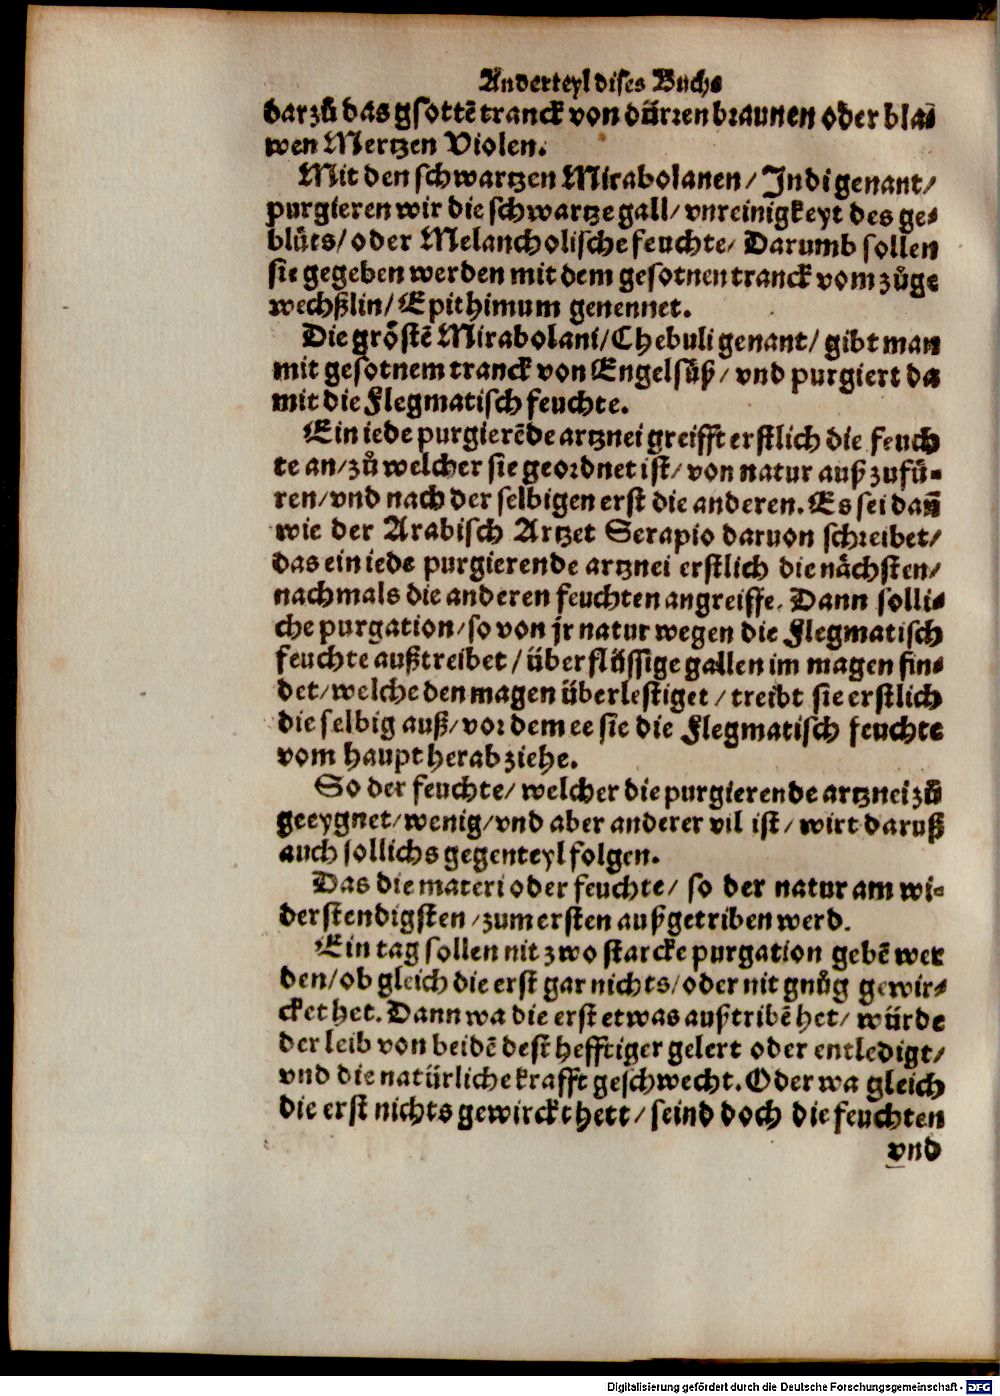 Anderteyl dises Buchs
darzů das gsottē tranck von dürren braunen oder bla⸗
wen Mertzen Violen.
Mit den schwartzen Mirabolanen/ Indi genant/
purgieren wir die schwartze gall/ vnreinigkeyt des ge⸗
blůts/ oder Melancholische feuchte/ Darumb sollen
sie gegeben werden mit dem gesotnen tranck vom zůge
wechßlin/ Epithimum genennet.
Die grőstē Mirabolani/ Chebuli genant/ gibt man
mit gesotnem tranck von Engelsůß/ vnd purgiert da
mit die Flegmatisch feuchte.
Ein iede purgierēde artznei greifft erstlich die feuch
te an/ zů welcher sie geordnet ist/ von natur auß zufů⸗
ren/ vnd nach der selbigen erst die anderen. Es sei dañ
wie der Arabisch Artzet Serapio daruon schreibet/
das ein iede purgierende artznei erstlich die nächsten/
nachmals die anderen feuchten angreiffe. Dann solli⸗
che purgation/ so von jr natur wegen die Flegmatisch
feuchte außtreibet/ überflüssige gallen im magen fin⸗
det/ welche den magen überlestiget/ treibt sie erstlich
die selbig auß/ vor dem ee sie die Flegmatisch feuchte
vom haupt herab ziehe.
So der feuchte/ welcher die purgierende artznei zů
geeygnet/ wenig/ vnd aber anderer vil ist/ wirt daruß
auch sollichs gegenteyl folgen.
Das die materi oder feuchte/ so der natur am wi⸗
derstendigsten/ zum ersten außgetriben werd.
Ein tag sollen nit zwo starcke purgation gebē wer
den/ ob gleich die erst gar nichts/ oder nit gnůg gewir⸗
cket het. Dann wa die erst etwas außtribē het/ würde
der leib von beidē dest hefftiger gelert oder entledigt/
vnd die natürliche krafft geschwecht. Oder wa gleich
die erst nichts gewirckt hett/ seind doch die feuchten
vnd
Digitalisierung gefördert durch die Deutsche Forschungsgemeinschaft - DFG